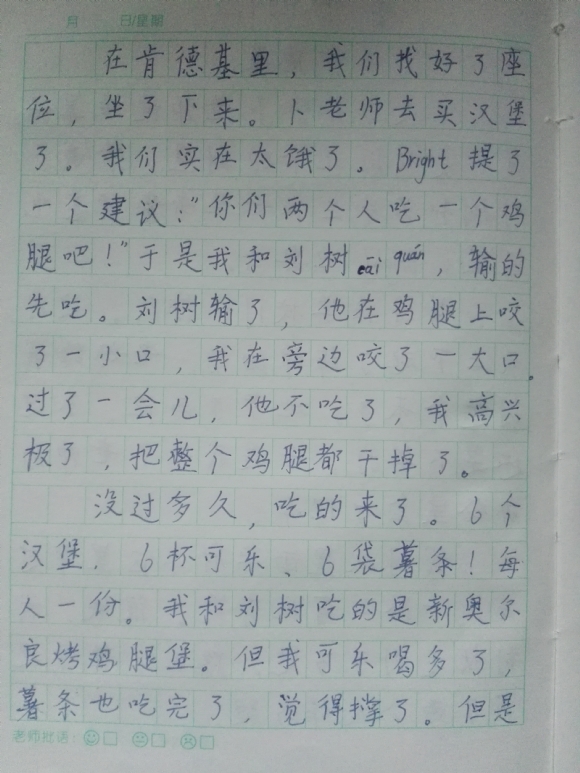 月 日/星期
在肯德基里，我们找好了座
位，坐了下来。卜老师去买汉堡
了。我们实在太饿了。Bright提了
一个建议："你们两个人吃一个鸡
腿吧！"于是我和刘树cāi quán，输的
先吃。刘树输了，他在鸡腿上咬
了一小口，我在旁边咬了一大口.
过了一会儿，他不吃了，我高兴
极了，把整个鸡腿都干掉了。
没过多久，吃的来了。6个
汉堡、6杯可乐、6袋薯条！每
人一份。我和刘树吃的是新奥尔
良烤鸡腿堡。但我可乐喝多了，
薯条也吃完了，觉得撑了。但是
老师批语：